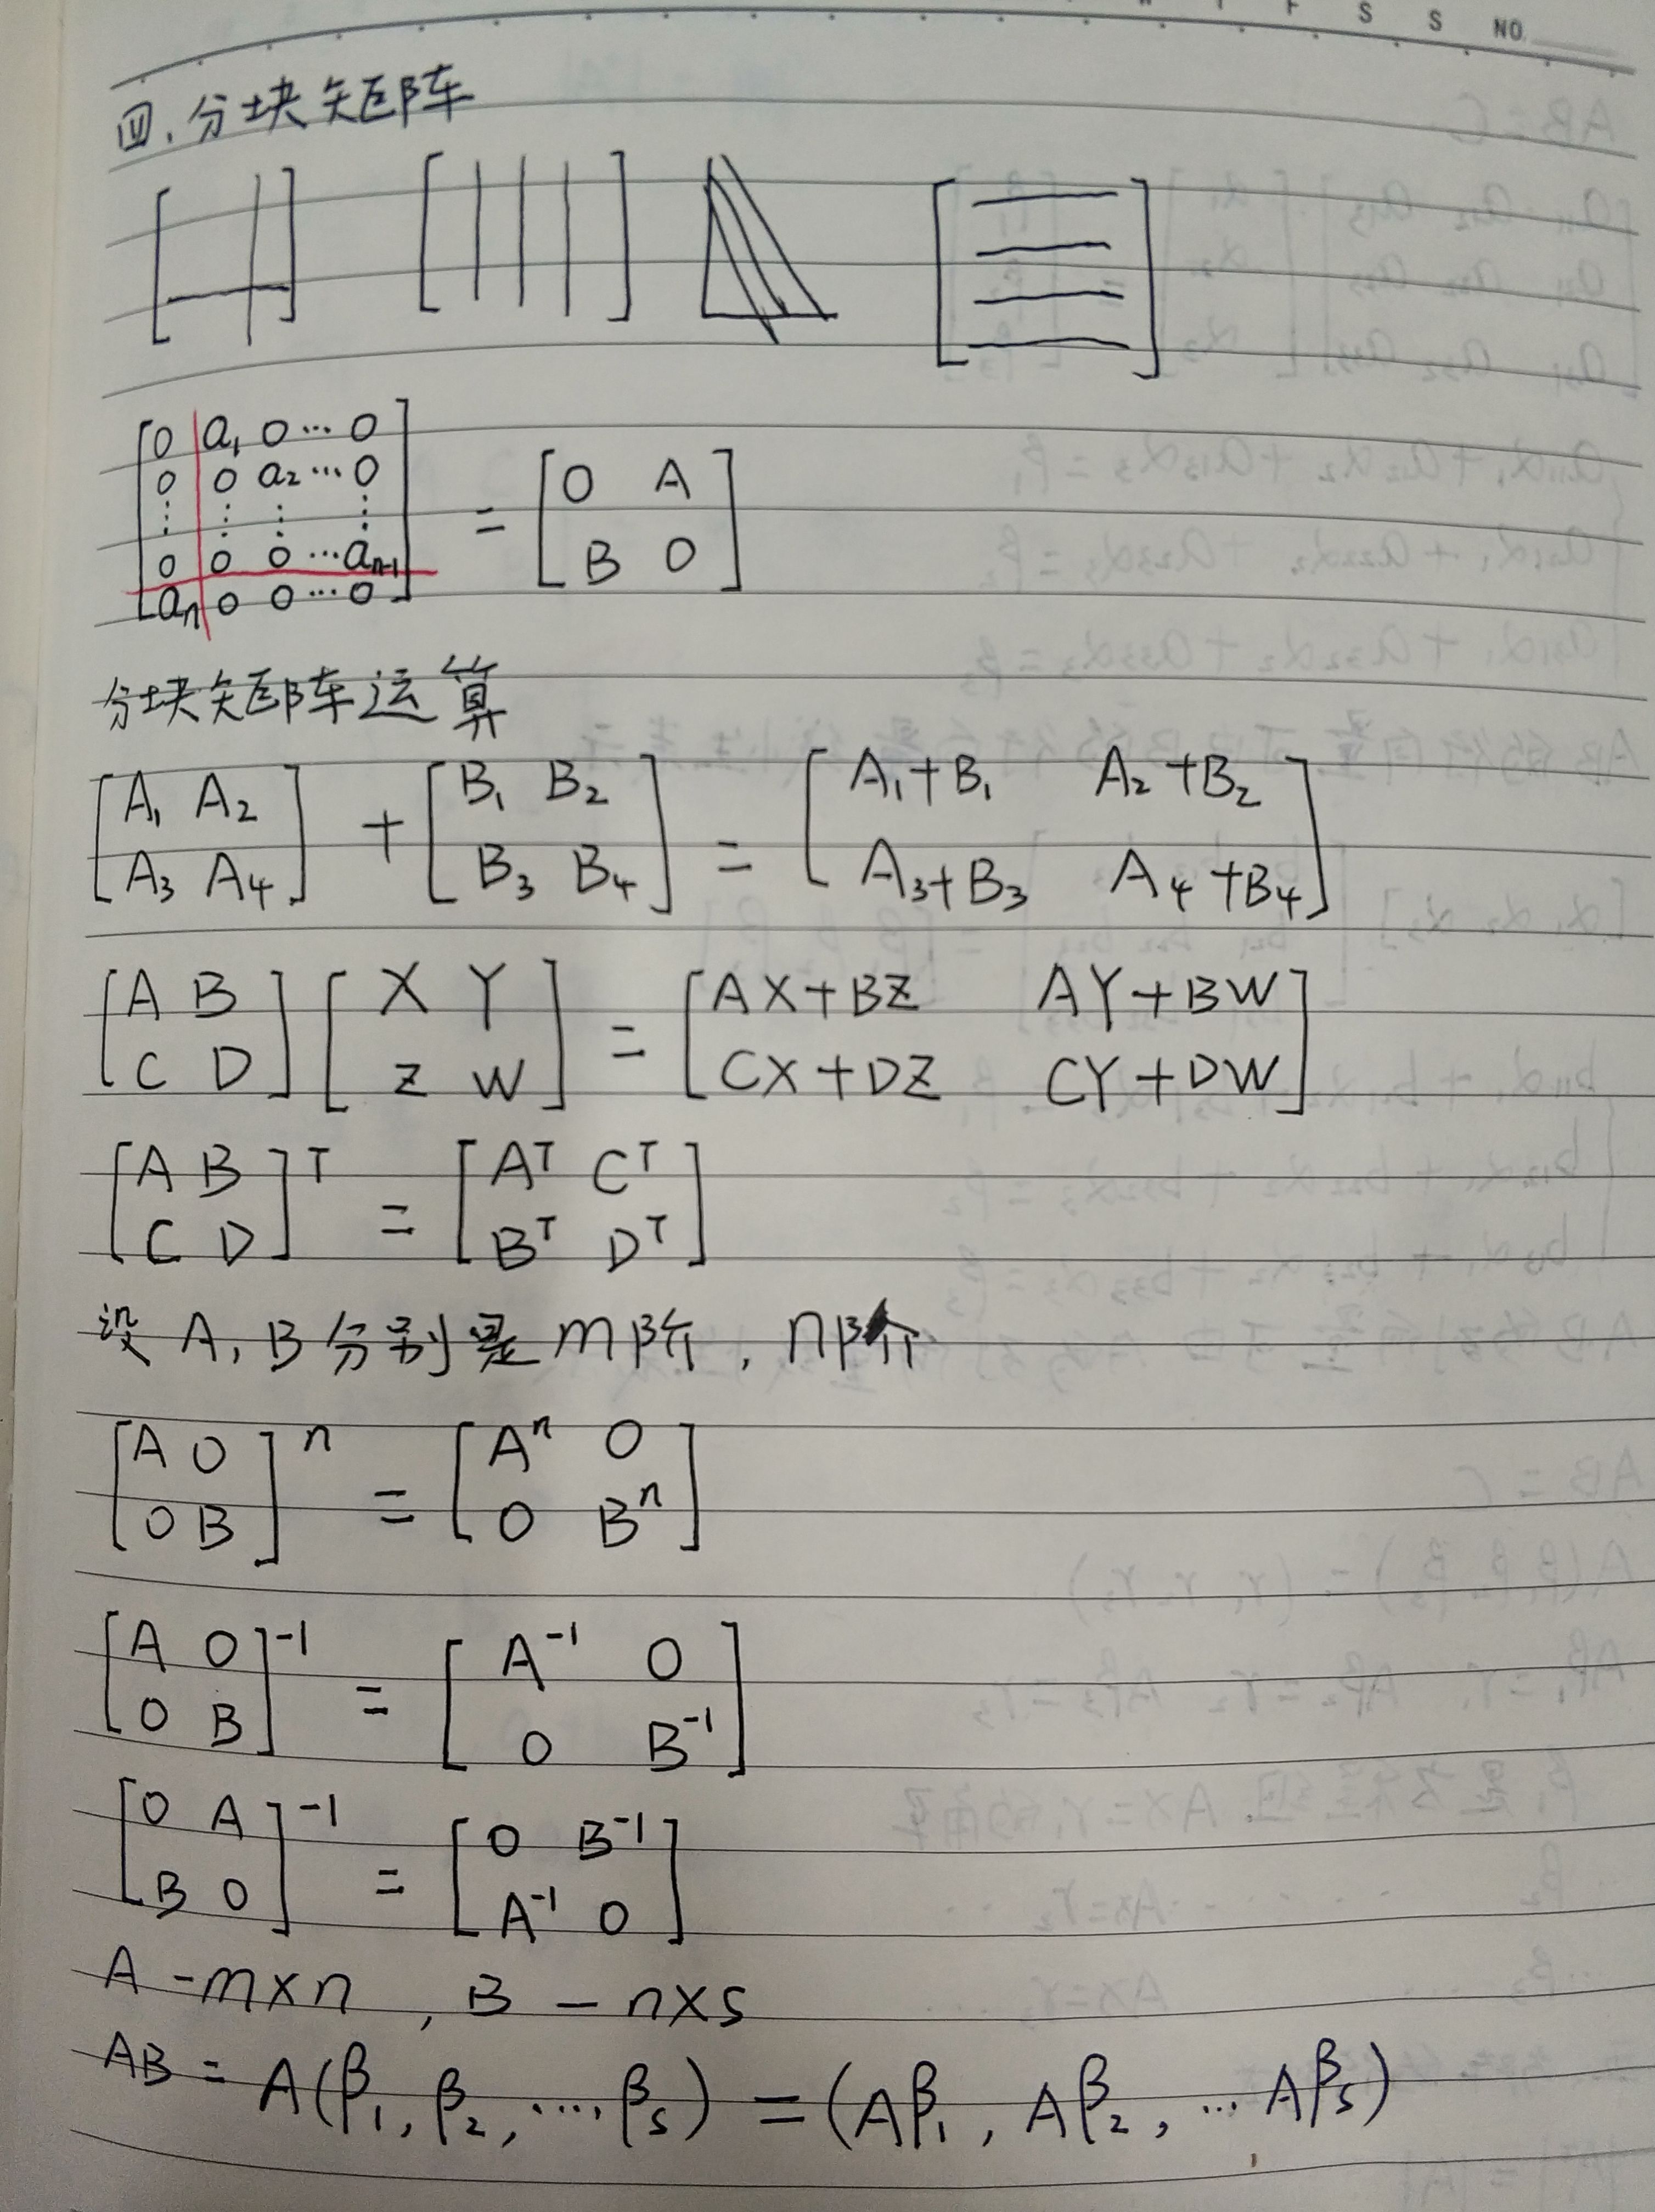 T F S S NO.
四.分块矩阵
[0 a₁ 0 ⋯ 0
0 0 a₂ ⋯ 0
⋮ ⋮ ⋮ ⋮
0 0 0 ⋯ aₙ₋₁
aₙ 0 0 ⋯ 0] = [0 A
B 0]
分块矩阵运算
[A₁ A₂
A₃ A₄] + [B₁ B₂
B₃ B₄] = [A₁+B₁ A₂+B₂
A₃+B₃ A₄+B₄]
[A B
C D] [X Y
Z W] = [AX+BZ AY+BW
CX+DZ CY+DW]
[A B
C D]ᵀ = [Aᵀ Cᵀ
Bᵀ Dᵀ]
设 A, B 分别是 m阶, n阶
[A 0
0 B]ⁿ = [Aⁿ 0
0 Bⁿ]
[A 0
0 B]⁻¹ = [A⁻¹ 0
0 B⁻¹]
[0 A
B 0]⁻¹ = [0 B⁻¹
A⁻¹ 0]
A - m×n , B - n×s
AB = A(β₁, β₂, ⋯, βs) = (Aβ₁, Aβ₂, ⋯ Aβs)